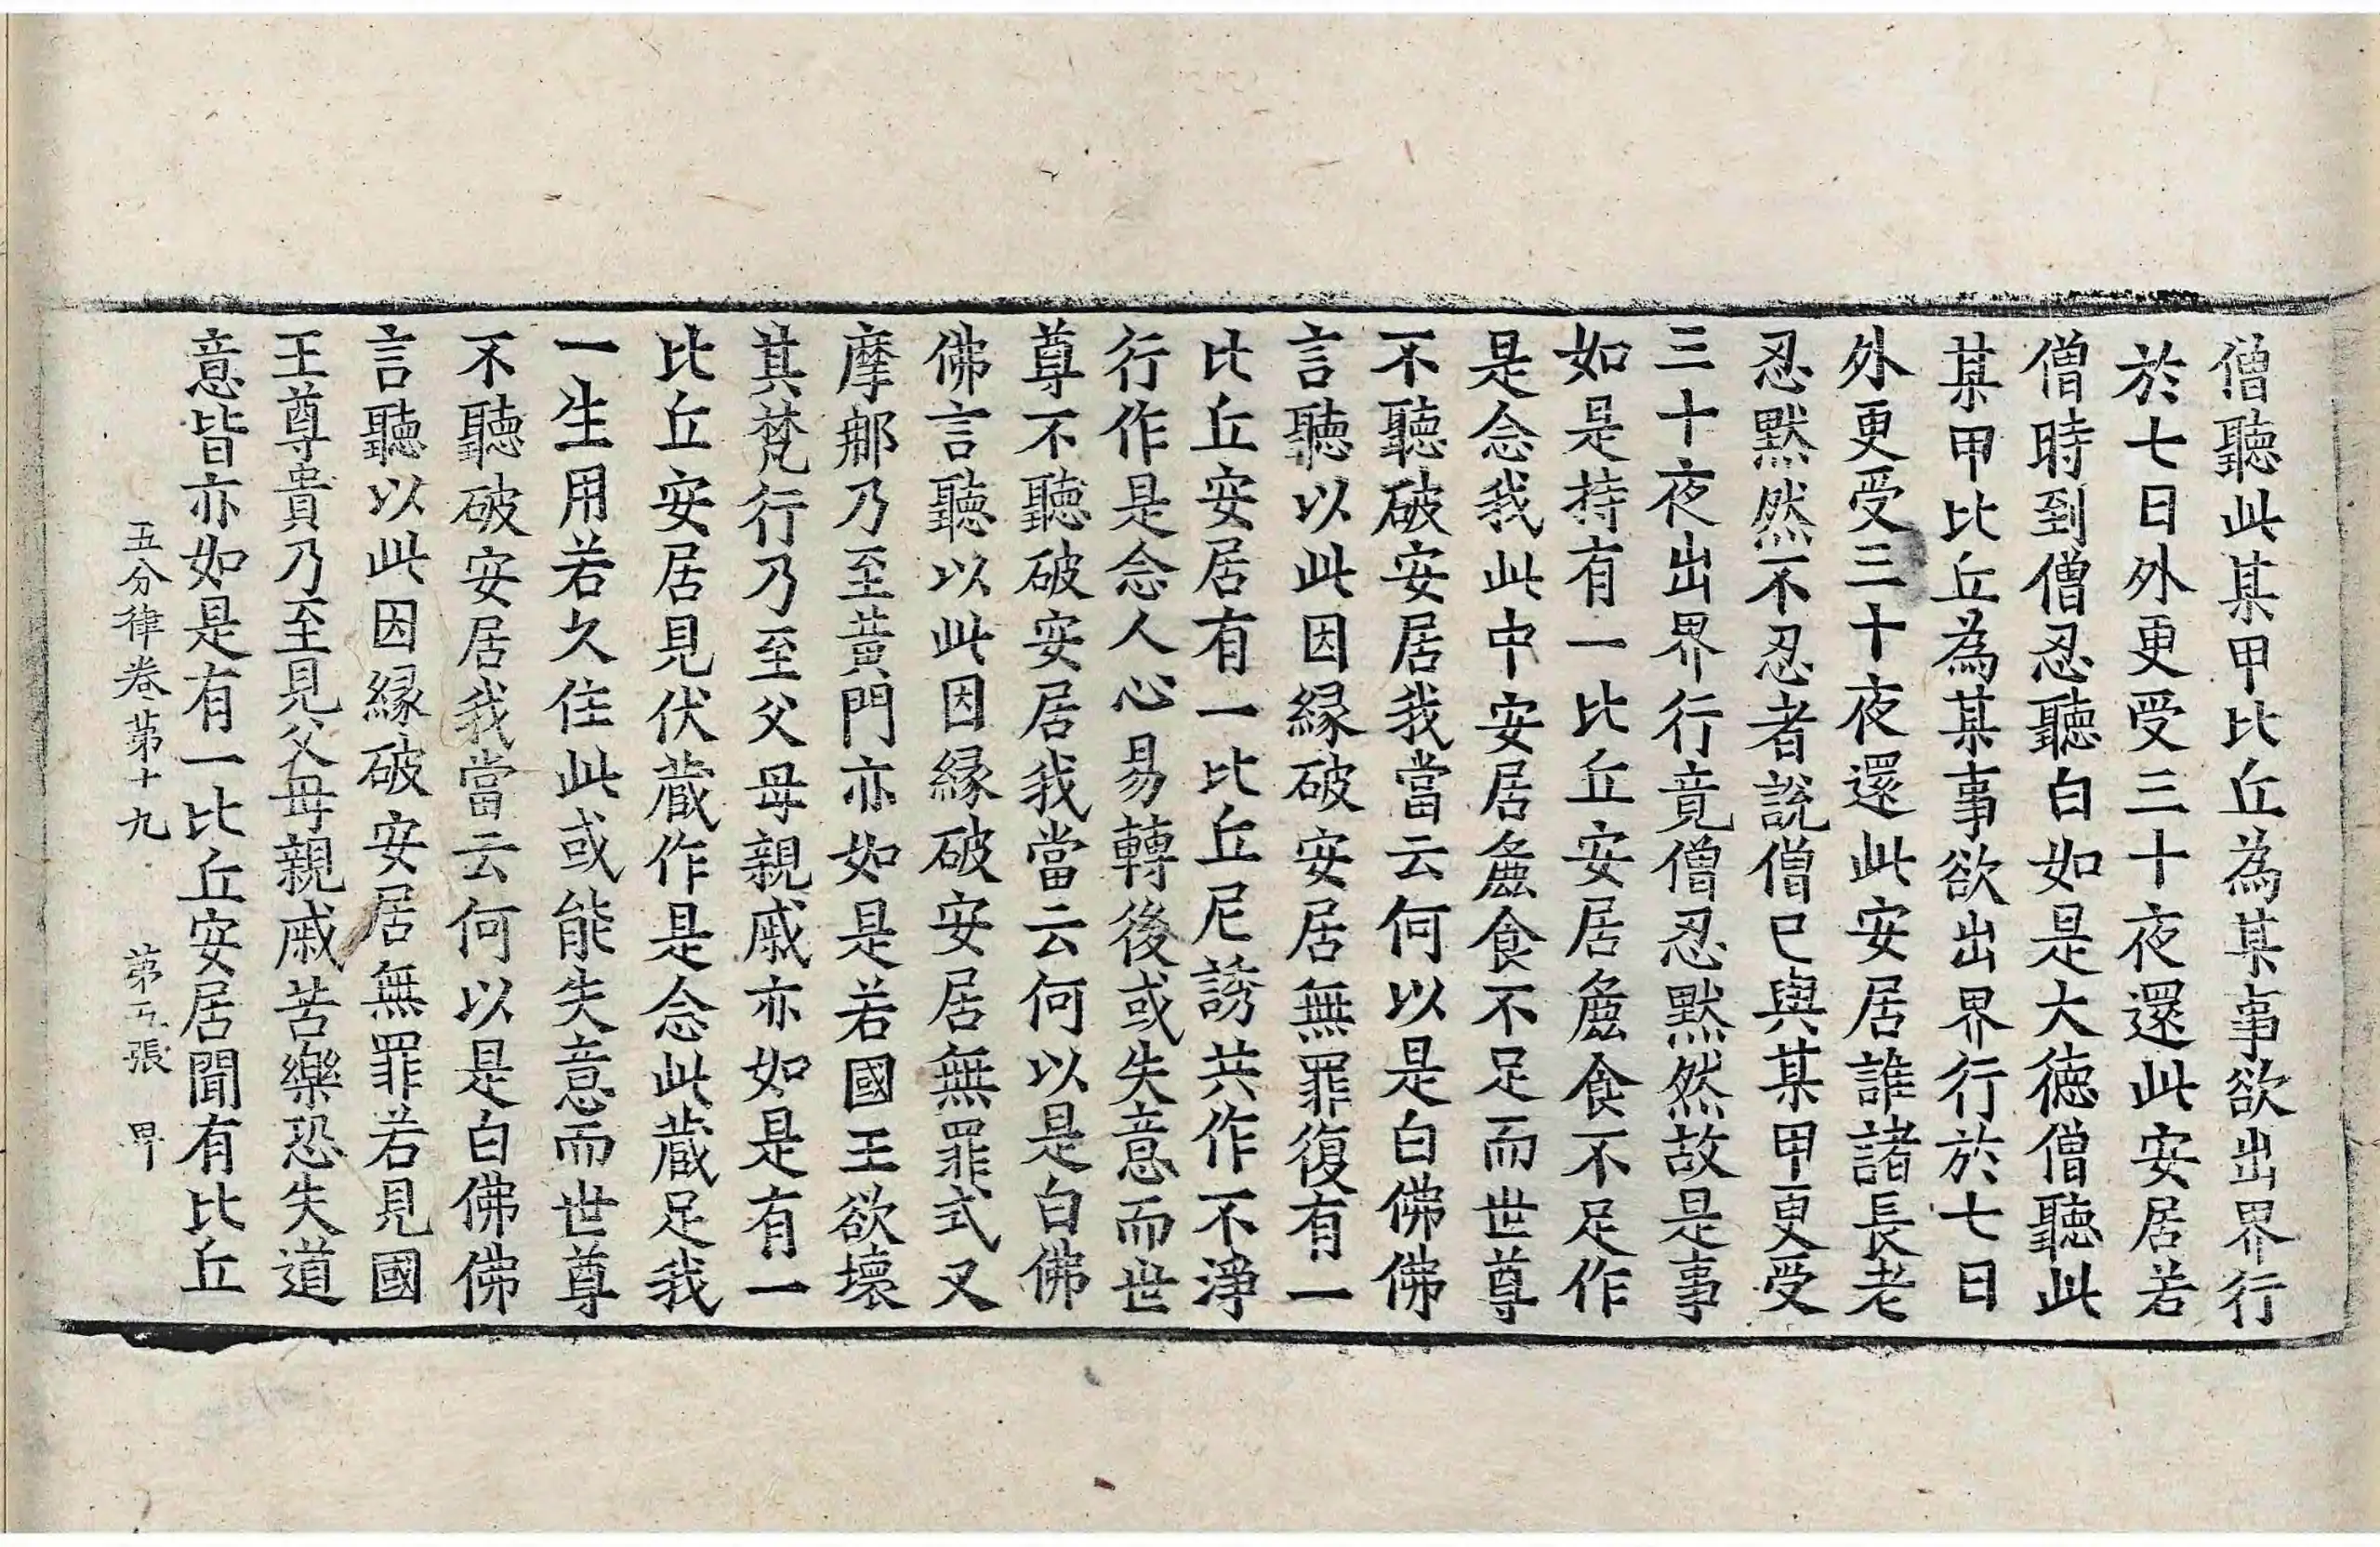 僧聽此某甲比丘為某事欲出界行
於七日外更受三十夜還此安居若
僧時到僧忍聽白如是大德僧聽此
某甲比丘為某事欲出界行於七日
外更受三十夜還此安居誰諸長老
忍默然不忍者說僧已與某甲更受
三十夜出界行竟僧忍默然故是事
如是持有一比丘安居麁食不足作
是念我此中安居麁食不足而世尊
不聽破安居我當云何以是白佛佛
言聽以此因緣破安居無罪復有一
比丘安居有一比丘尼誘共作不淨
行作是念人心易轉後或失意而世
尊不聽破安居我當云何以是白佛
佛言聽以此因緣破安居無罪式叉
摩那乃至黃門亦如是若國王欲壞
其梵行乃至父母親戚亦如是有一
比丘安居見伏藏作是念此藏足我
一生用若久住此或能失意而世尊
不聽破安居我當云何以是白佛佛
言聽以此因緣破安居無罪若見國
王尊貴乃至見父母親戚苦樂恐失道
意皆亦如是有一比丘安居聞有比丘
五分律卷第十九 第五張 甲